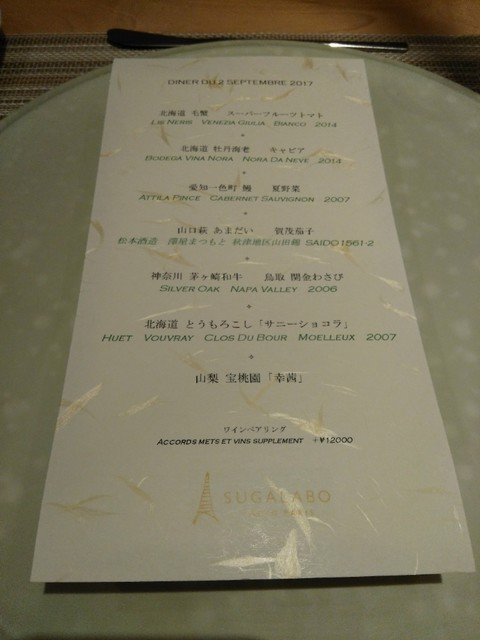 DINER DU 2 SEPTEMBRE 2017
北海道 毛蟹 スーパーフルーツトマト
LIS NERIS VENEZIA GIULIA, BIANCO 2014
北海道 牡丹海老 キャビア
BODEGA VINA NORA NORA DA NEVE 2014
愛知一色町 鰻 夏野菜
ATTILA PINCE CABERNET SAUVIGNON 2007
山口萩 あまだい 賀茂茄子
松本酒造 澤屋まつもと 秋津地区山田錦 SAIDO1561-2
神奈川 茅ヶ崎和牛 鳥取 関金わさび
SILVER OAK NAPA VALLEY 2006
北海道 とうもろこし「サニーショコラ」
HUET VOUVRAY CLOS DU BOUR MOELLEUX 2007
山梨 宝桃園「幸茜」
ワインペアリング
ACCORDS METS ET VINS SUPPLEMENT +¥12000
SUGALABO
PARIS